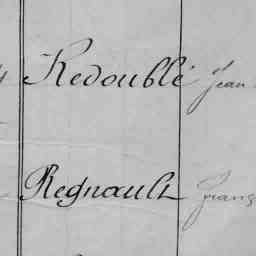 Redoublé Jean
Regnault